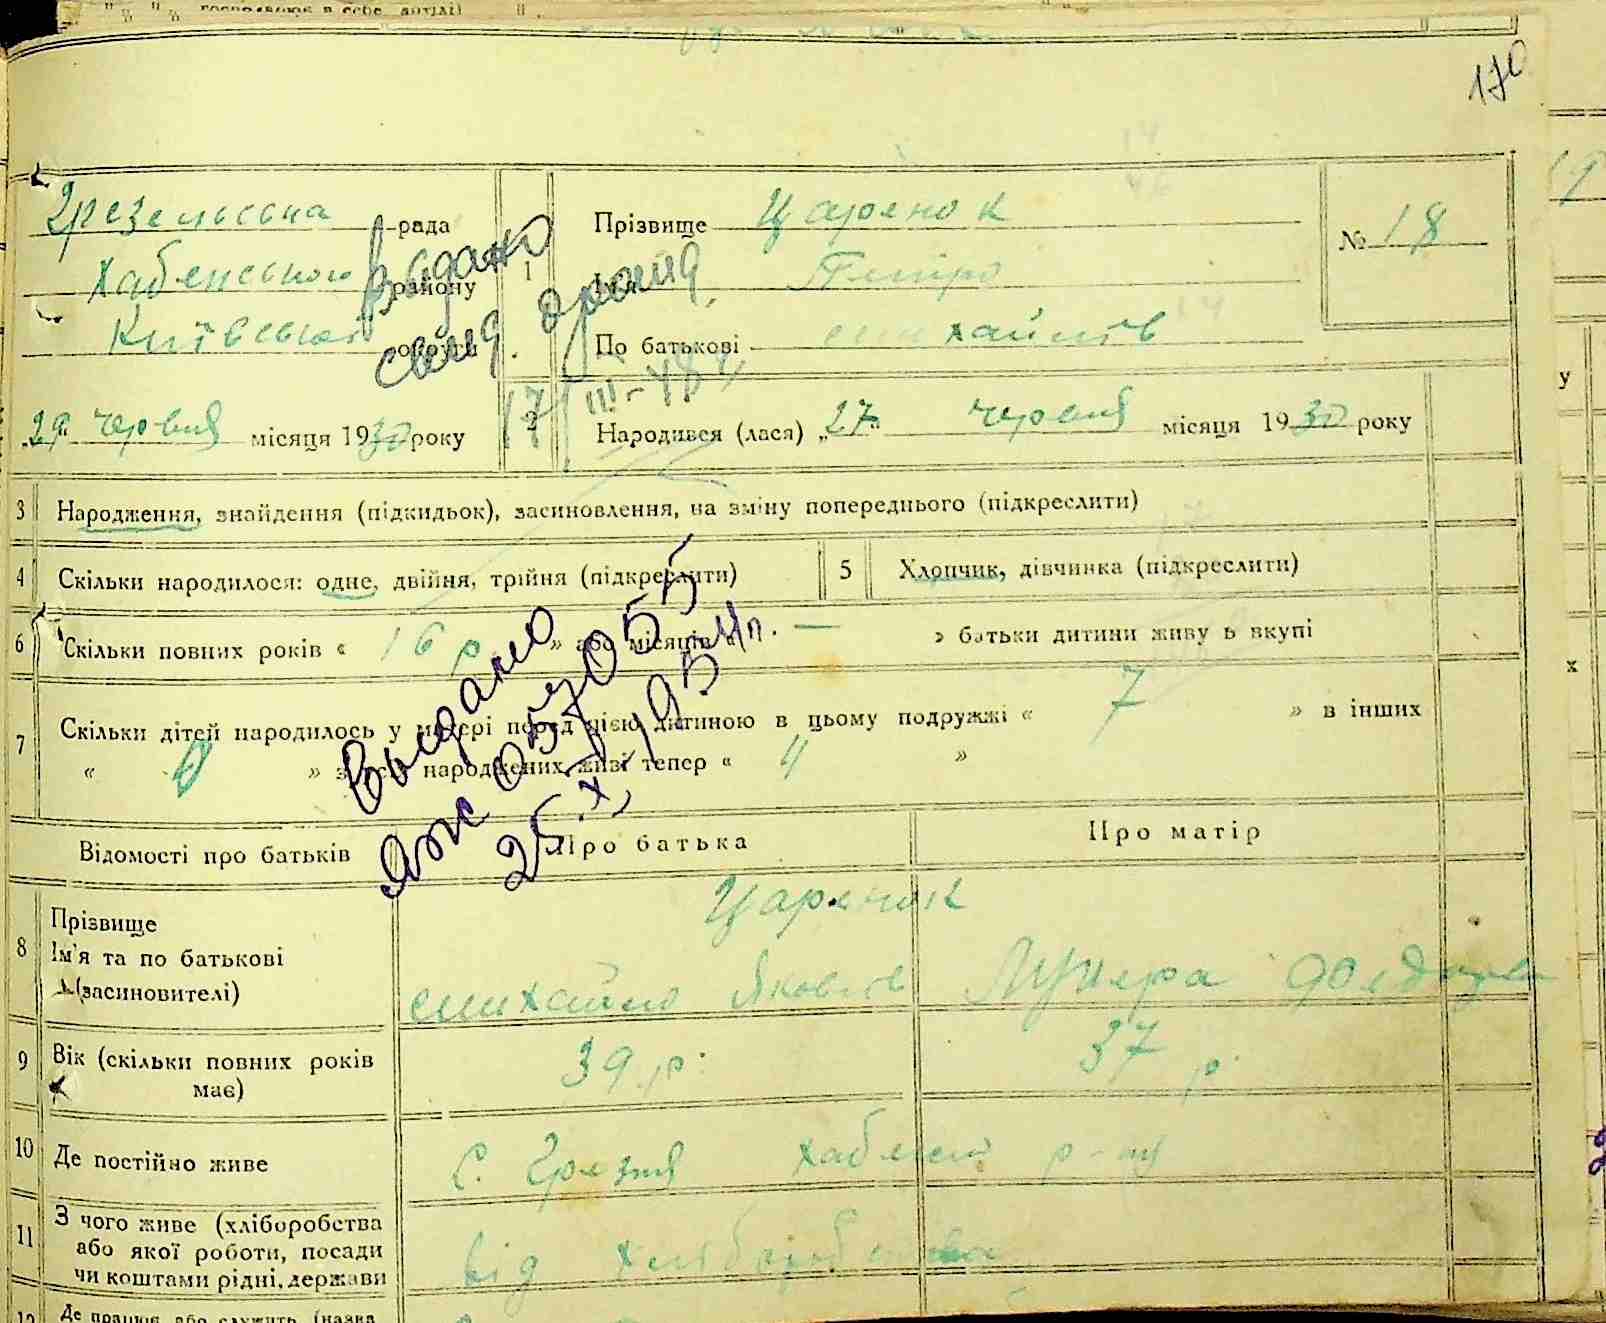 господарює в себе
170
Грезельська рада
Хабенського району
Київської округи
29 червня місяця 1930 року
1
Прізвище Царенок
Ім'я Петро
По батькові михайлів
№ 18
Видано свид.
17/III-48
2
Народився (лася) „27" червня місяця 1930 року
3 Народження, знайдення (підкидьок), засиновлення, на зміну попереднього (підкреслити)
4 Скільки народилося: одне, двійня, трійня (підкреслити)
5 Хлопчик, дівчинка (підкреслити)
6 Скільки повних років « 16 р » або місяців « — » батьки дитини живуть вкупі
7 Скільки дітей народилось у матері перед цією дитиною в цьому подружжі « 7 » в інших
« 0 » з усіх народжених живі тепер « 4 »
Выдано
057055
25.X.195
Відомості про батьків
Про батька
Про матір
8 Прізвище
Ім'я та по батькові
(засиновителі)
Царенок
михайло Яковлів
9 Вік (скільки повних років
має)
39 р.
37 р.
10 Де постійно живе
С. Грезля Хабенсь р-ну
11 З чого живе (хліборобства
або якої роботи, посади
чи коштами рідні, держави
від хліборобства
12 Де працює або служить (назва